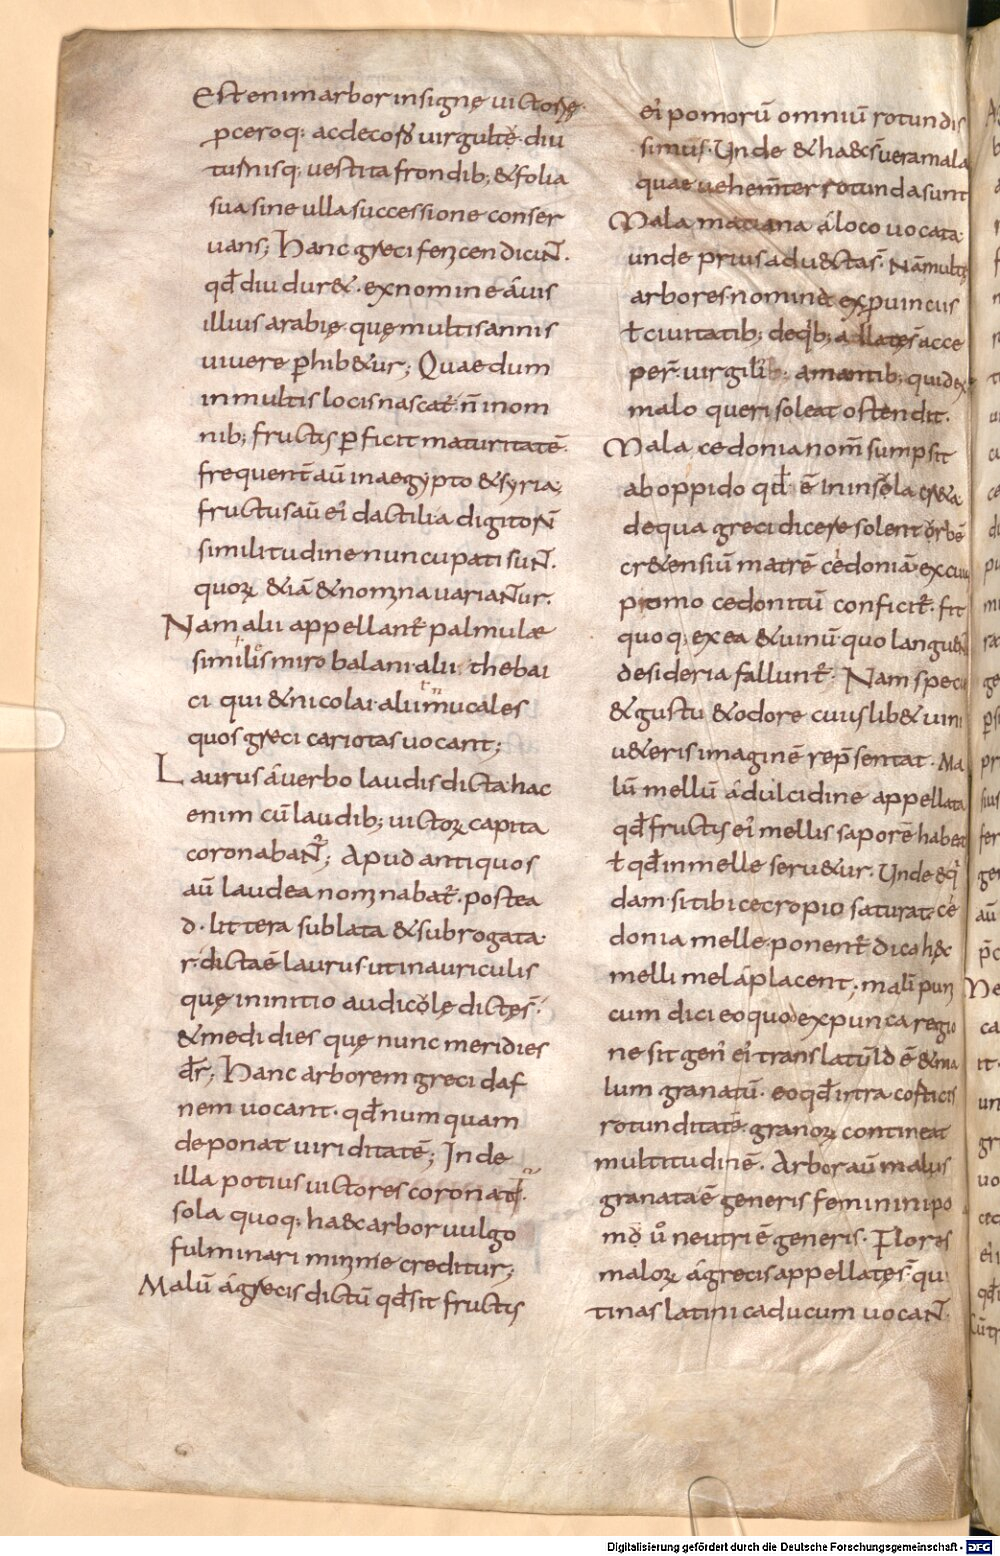 Est enim arbor insigne uictoriȩ
ꝑceroq; ac decoro uirgulto. diu
turnisq; uestita frondib; & folia
sua sine ulla successione conser
uans; Hanc greci fenicen dicuNt.
qđ diu dur&. ex nomine auis
illius arabiȩ quȩ multis annis
uiuere ꝑhib&ur; Quae dum
in multis locis nascat̄. n̄ in om
nib; fructus ꝑficit maturitatē.
frequent̄ aū in aegypto & syria;
fructus aū ei᾽ dactilia digitoꝝ
similitudine nuncupati suNt.
quoꝝ &iā & nomina uariaNtur.
Nam alii appellant᷑ palmulae
similis miro balani. alii thebai
ci qui & nicolai. alii nucales
quos greci cariotas uocant;
Laurus á uerbo laudis dicta. hac
enim cū laudib; uictoꝝ capita
coronabaNt᷑; Apud antiquos
aū laudea nominabat᷑. postea
d. littera sublata & subrogata.
r. dicta ē laurus. ut in auriculis
quȩ in initio audicolȩ dictȩ s̄.
& medi dies quȩ nunc meridies
dr̄; Hanc arborem greci daf
nem uocant. qđ numquam
deponat uiriditatē; Inde
illa potius uictores coronat᷑.
sola quoq; haec arbor uulgo
fulminari minime creditur;
Malū á grecis dictū qđ sit fructus
ei᾽ pomorū omniū rotundis
simus. Unde & haec s̄ uera mala
quae uehemt̄er rotunda sunt
Mala matiana á loco uocata
unde prius aduecta s̄. Nā multȩ
arbores nomina ex ꝓuinciis
ł ciuitatib; de qib; allatȩ s̄ acce
per̄. uirgili᾽ amantib; quid ex
malo queri soleat ostendit.
Mala cedonia nom̄ sumpsit
ab oppido qđ ē in insola creta
de qua greci dicere solent urbē
cr&ensiū matrē cedoniā ex cui᾽
pomo cedonitū conficit᷑. fit
quoq; ex ea & uinū quo langu&
desideria fallunt᷑. Nam specie
& gustu & odore cuiuslib& uini
u&eris imaginē rep̄sentat. Ma
lū mellū á dulcidine appellata
qđ fructus ei᾽ mellis saporē habet
ł qđ in melle seru&ur. Unde & q̇
dam. si tibi cecropio saturata ce
donia melle. ponent᷑ dicas hȩc
melli mela placent; mali puni
cum dici eo quod ex punica regio
ne sit gen᾽ ei᾽ translatū. Id ē & ma
lum granatū. eo qđ intra corticis
rotunditatē. granoꝝ contineat
multitudinē. Arbor aū malus
granata ē generis feminini po
mū ů neutri ē generis. Flores
maloꝝ á grecis appellatȩ s̄. qui
tinas latini caducum uocaNt.
Digitalisierung gefördert durch die Deutsche Forschungsgemeinschaft - DFG